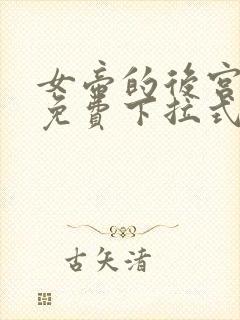 女帝的後宮
免費下拉式
古矢清